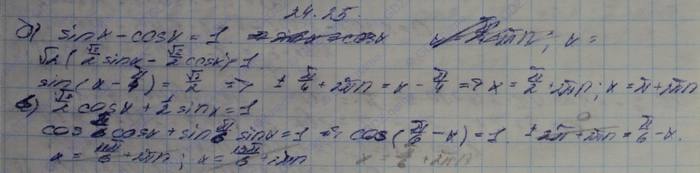 24.25.
б) sinx - cosx = 1
√2 (√2/2 sinx - √2/2 cosx) = 1
sin(x - π/4) = √2/2 => ± π/4 + 2πn = x - π/4 => x = π/2 + 2πn; x = π + 2πn
в) √3/2 cosx + 1/2 sinx = 1
cos π/6 cosx + sin π/6 sinx = 1 => cos(π/6 - x) = 1 ± 2π + 2πn = π/6 - x.
x = 11π/6 + 2πn; x = 13π/6 + 2πn